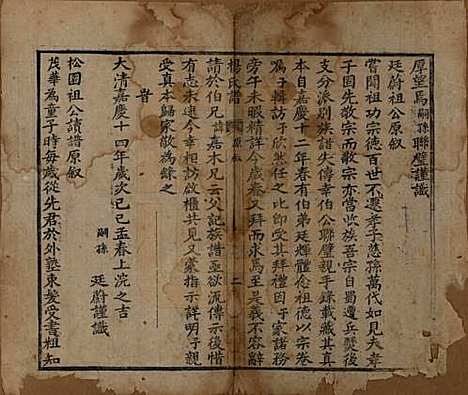 厚望焉嗣孫聯璧謹識
廷蔚祖公原叙
嘗聞祖功宗德百世不遷孝子慈孫萬代如見夫幸
子固先敬宗而敬宗亦當收族吾宗自蜀遭兵燹後
支分派别族譜失傳幸伯公聯璧親手録載藏其真
本自嘉慶十二年春有伯弟廷輝體念祖德以宗卷
囑予轉訪予欣然任之比即受其拜囙予家諸務
旁午未暇精詳今歲又拜而求焉至是義不容辭
楊氏譜 原叙 二
請於伯兄 諱 嘉木兄云父記族譜並欲流傳示後惜
有志未遠今幸相訪啟櫃共見又蒙指示詳明予親
受真本歸家敬為錄之
旹
大清嘉慶十四年歲次己巳孟春上浣之吉
嗣孫 廷蔚謹識
松園祖公讀譜原叙
茂華為童子時每歲從先君於外塾束髮受書粗知